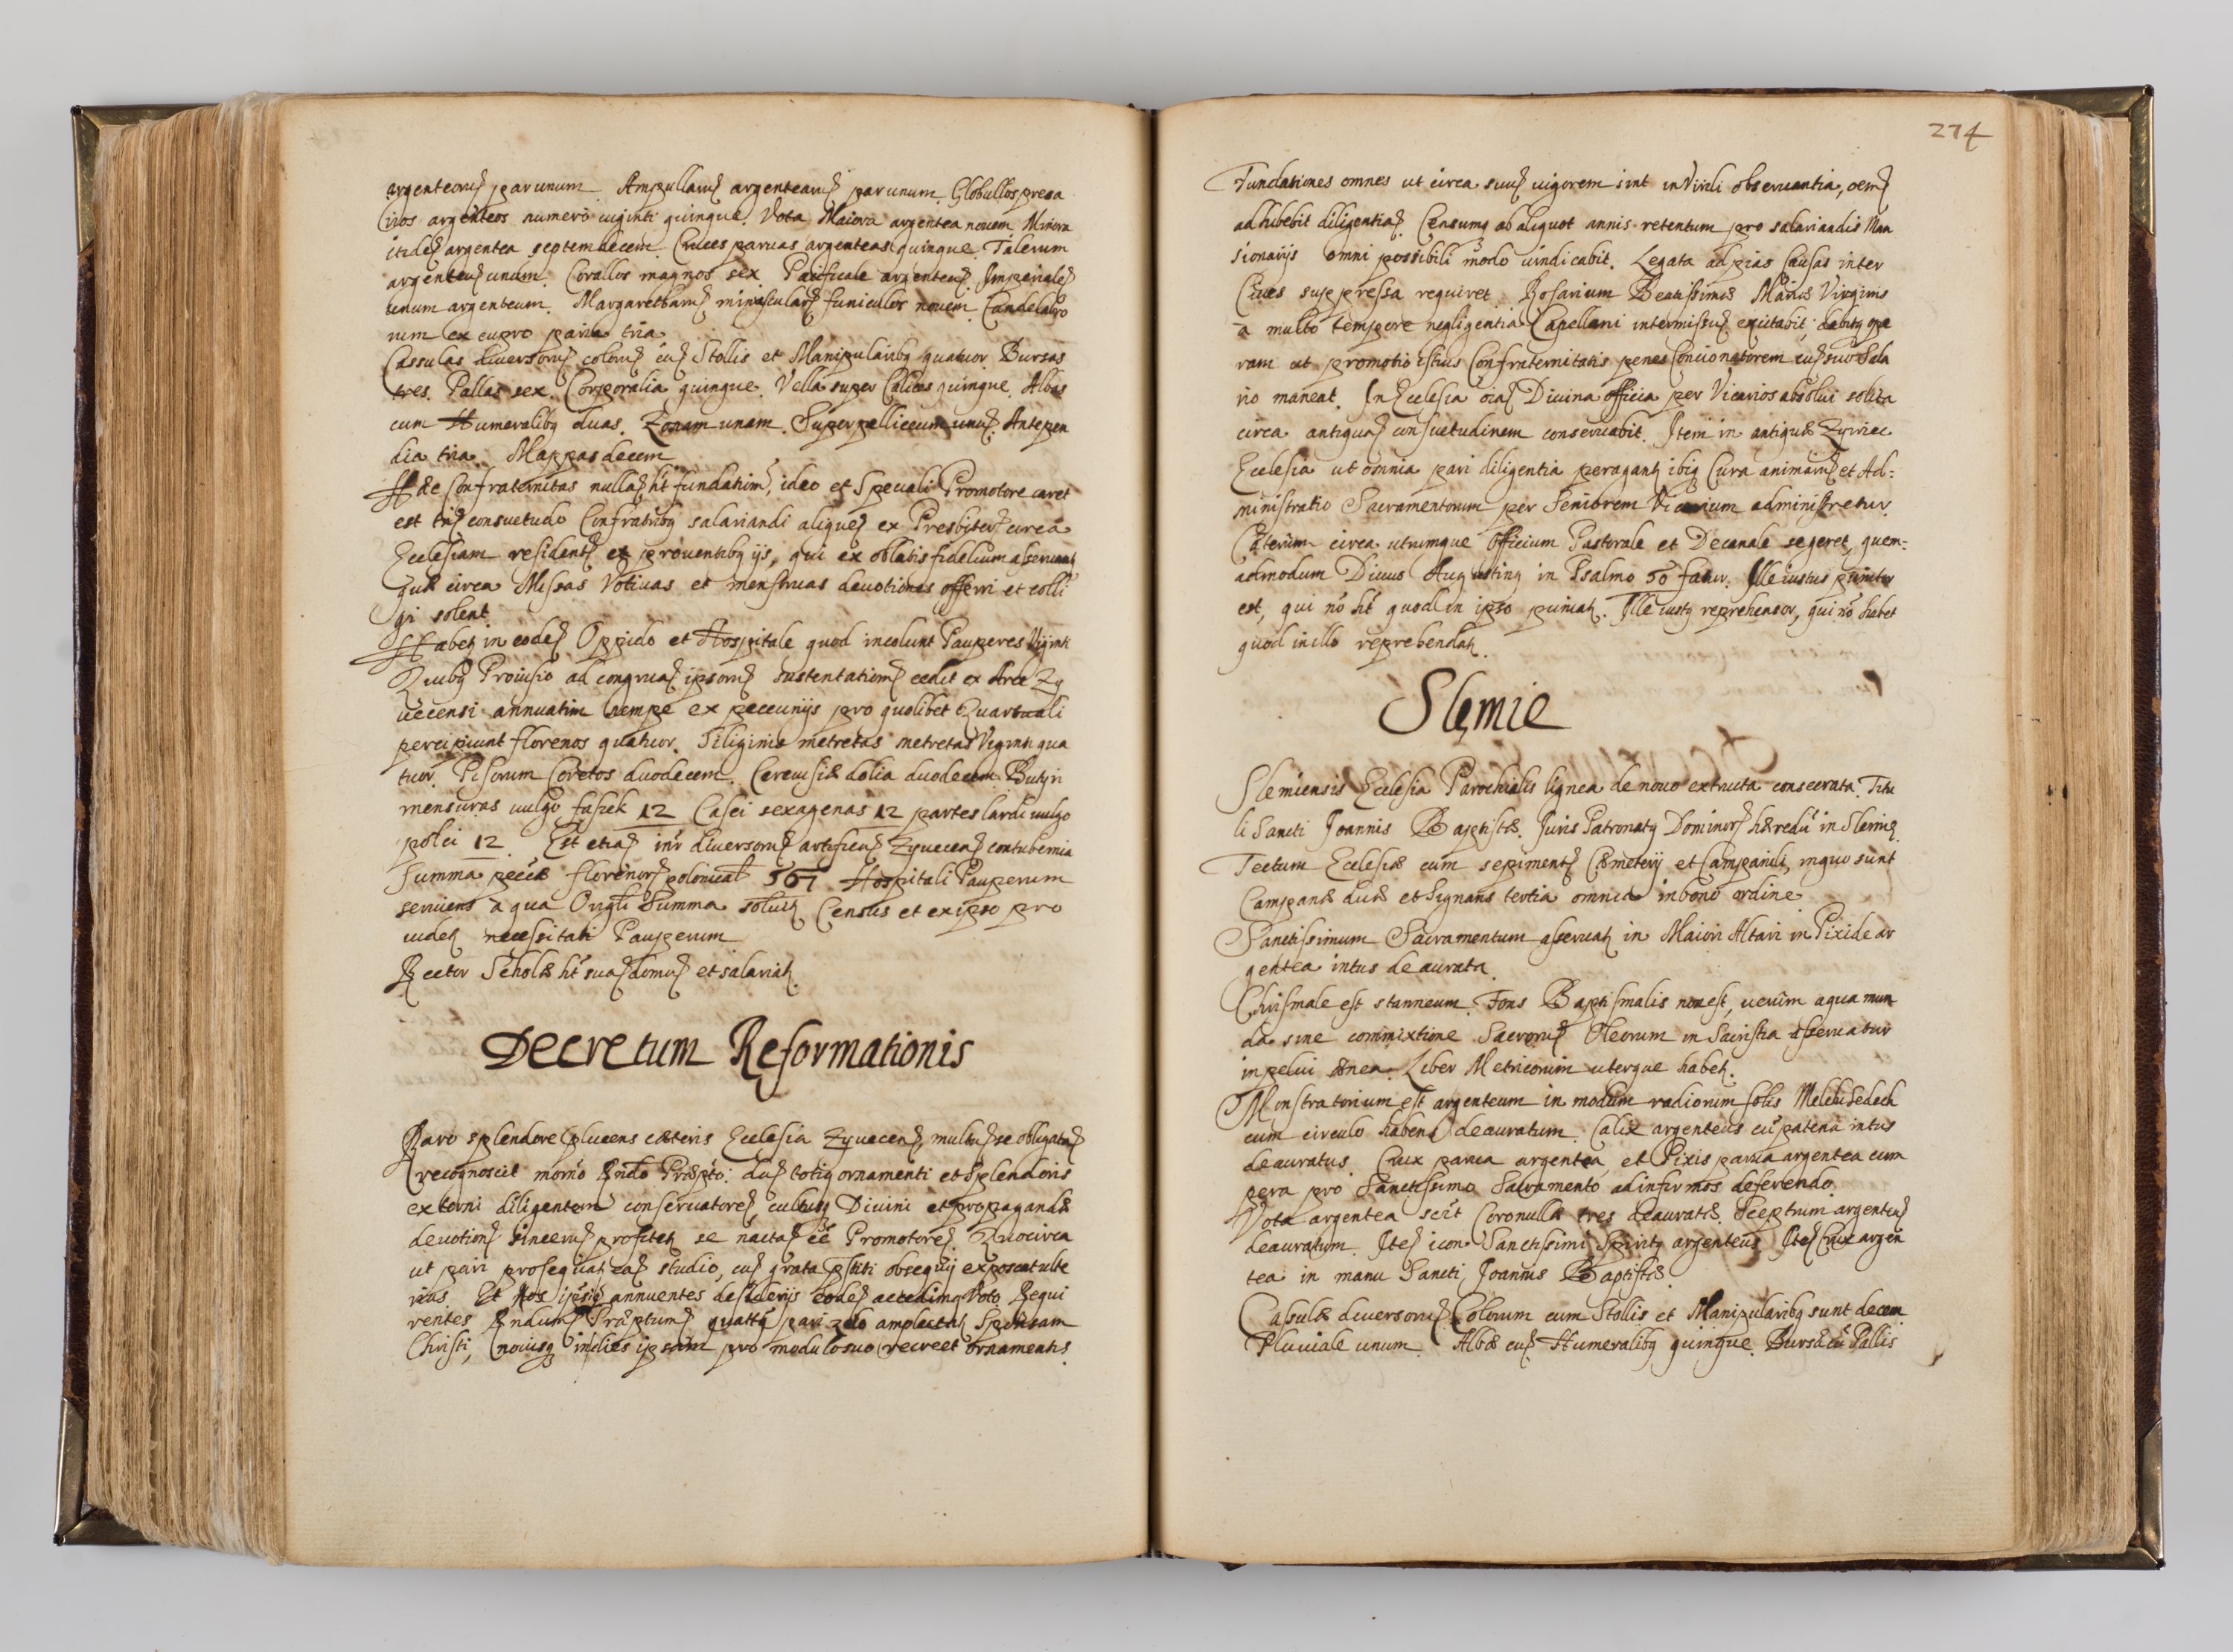 argenteoruꝫ par unum. Ampullaruꝫ argentearuꝫ par unum. Globullos preca
rios argenteos numero viginti quinque. Vota Maiora argentea novem Minora
itideꝫ argentea septemdecem. Cruces parvas argenteas quinque. Talerum
argenteuꝫ unum. Corallos magnos sex. Pacificale argenteuꝫ. Imperialeꝫ
unum argenteum. Margaretharuꝫ minuscularuꝫ funiculos novem. Candelabro
rum ex cupro paria tria.
Cassulas diversoruꝫ coloruꝫ cuꝫ Stollis et Manipularibꝫ quatuor. Bursas
tres. Pallas sex. Corporalia quinque. Vella super Calices quinque. Albas
cum Humeralibꝫ duas. Zonam unam. Superpelliceum unuꝫ. Antepen
dia tria. Mappas decem.
Hæc Confraternitas nullaꝫ ht fundationeꝫ, ideo et Speciali Promotore caret
est tñ consuetudo Confratribꝫ salariandi aliqueꝫ ex Presbiteris circa
Ecclesiam residentꝫ ex proventibꝫ ijs, qui ex oblatis fidelium asservant
quæ circa Missas Votivas et menstruas devotiones offerri et colli
gi solent.
Habet in eodeꝫ Oppido et Hospitale quod incolunt Pauperes Viginti
Quibꝫ Provisio ad congruaꝫ ipsoruꝫ sustentationeꝫ cedit ex Arce Zy
vecensi annuatim nempe ex pecunijs pro quolibet Quartuali
percipiunt florenos quatuor. Siliginis metretas metretas Viginti qua
tuor. Pisorum Coretos duodecem. Cerevisiæ dolia duodecem. Butyri
mensuras vulgo fasiek 12 Casei sexagenas 12 partes lardi vulgo
polci 12. Est etiaꝫ inr diversoruꝫ artificuꝫ Zyvecenꝫ contubernia
Summa pecuæ florenorꝫ polonical 567 Hospitali Pauperum
serviens a qua Origli Summa solvitꝫ Census et ex ipso pro
videtꝫ necessitati Pauperum
Rector Scholæ ht suaꝫ domuꝫ et salariatꝫ.
Decretum Reformationis
Raro splendore plucens cæteris Ecclesia Zyvecenꝫ, multuꝫ se obligataꝫ
recognoscit morno Rndo Præpto: duꝫ totiꝫ ornamenti et splendoris
externi diligentem conservatoreꝫ, cultusꝫ Divini et propagandæ
devotionꝫ sinceruꝫ profitetꝫ se nactaꝫ eē Promotoreꝫ. Quocirca
ut pari prosequatꝫ eaꝫ studio, cuꝫ grata pstiti obsequij exposcat ulte
rius. Et Nos ipsiꝫ annuentes desiderijs eodeꝫ accedimꝫ Voto Requi
rentes Rnduꝫ Præptumꝫ quattꝫ pari zelo amplectatꝫ Sponsam
Christi, novisꝫ indies ipsam pro modulo suo recreet ornamentis.
274
Fundationes omnes ut circa suuꝫ vigorem sint in Viridi observantia, oemꝫ
adhibebit diligentiaꝫ. Censumꝫ ab aliquot annis retentum pro salariandis Man
sionarijs omni possibili modo vindicabit. Legata ad pias causas inter
Cives suppressa requiret. Rosarium Beatissimæ Mariæ Virginis
a multo tempore negligentia Capellani intermissuꝫ excitabit; dabitꝫ ope
ram ut promotio istius Confraternitatis penes Concionatorem cuꝫ suo Sala
rio maneat. In Ecclesia oiaꝫ Divina officia per Vicarios absolvi solita
circa antiquaꝫ consuetudinem conservabit. Item in antiqua Zywiec
Ecclesia ut omnia pari diligentia peragantꝫ ibiꝫ Cura animaruꝫ et Ad=
ministratio Sacramentorum per Seniorem Vicarium administretur.
Cæterum circa utrumque Officium Pastorale et Decanale se geret, quem=
admodum Divus Augustinꝫ in Psalmo 50 fatur. Ille iustus punitor
est, qui nō ht quod in ipso puniatꝫ. Ille iustꝫ reprehensor, qui nō habet
quod in illo reprehendatꝫ.
Slemie
Slemiensis Ecclesia Parochialis lignea de novo extructa consecrata. Titu
li Sancti Joannis Baptistæ. Juris Patronatꝫ Dominorꝫ hæredū in Slemieꝫ.
Tectum Ecclesiæ cum sepimentꝫ Cæmeterij et Campanili, in quo sunt
Campanæ duæ et Signans tertia omnia in bono ordine.
Sanctissimum Sacramentum asservatꝫ in Maiori Altari in Pixide ar
gentea intus deaurata.
Chrismale est stanneum. Fons Baptismalis non est, verum aqua mun
da sine commixtione Sacroruꝫ Oleorum in Sacristia asservatur
in pelvi ænea. Liber Metricorum uterque habetꝫ.
Monstratorium est argenteum in modum radiorum solis Melchisedech
cum circulo habens deauratum. Calix argenteus cū patena intus
deauratus. Crux parva argentea et Pixis parva argentea cum
pera pro Sanctissimo Sacramento ad infirmos deferendo.
Vota argentea scit Coronullæ tres deauratæ. Sceptrum argenteuꝫ
deauratum. Iteꝫ icon Sanctissimi Spiritꝫ argenteus. Iteꝫ Crux argen
tea in manu Sancti Joannis Baptistæ.
Casulæ diversoruꝫ Colorum cum Stollis et Manipularibꝫ sunt decem
Pluviale unum. Albæ cuꝫ Humeralibꝫ quinque. Bursa cū Pallis